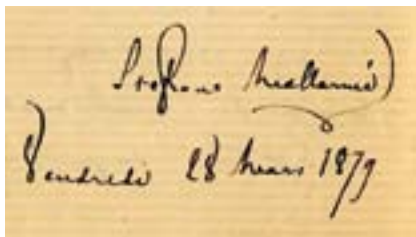 Stéphane Mallarmé
Vendredi 28 Mars 1879